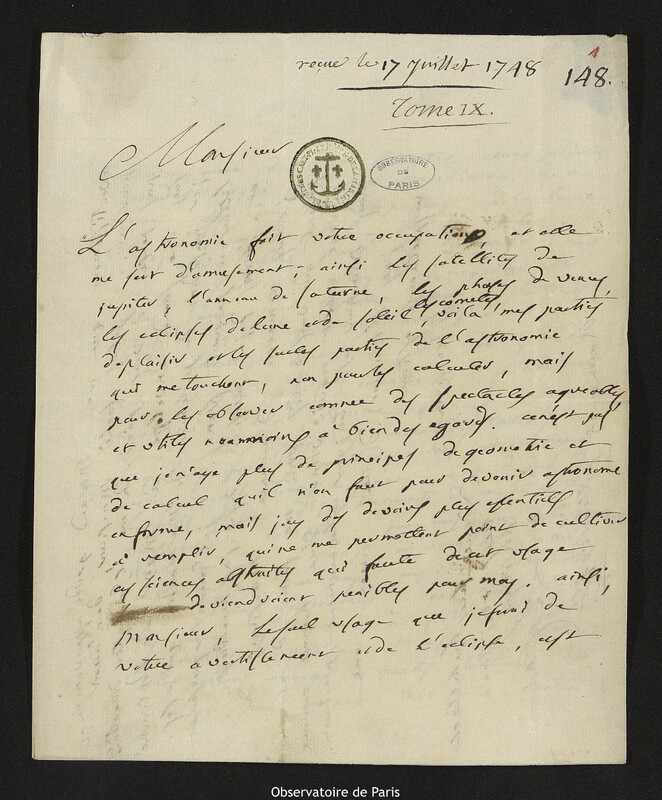 reçue le 17 Juillet 1748
1
148.
Tome IX.
Monsieur
OBSERVATOIRE
DE
PARIS
L'astronomie fait votre occupation, et elle
me sert d'amusement, ainsi les satellites de
jupiter, l'anneau de saturne, les phases de venus,
les cometes,
les eclipses de lune et de soleil, voila mes parties
de plaisir et les seules parties de l'astronomie
qui me touchent, non pour les calculer, mais
pour les observer comme des spectacles agreables
et utiles neanmoins à bien des egards. ce n'est pas
que je n'aye plus de principes de geometrie et
de calcul qu'il n'en faut pour devenir astronome
en forme, mais j'ay des devoirs plus essentiels
à remplir, qui ne me permettent point de cultiver
ces sciences abstraites qui faute de cet usage
deviendroient penibles pour moy. ainsi,
Monsieur, le seul usage que je ferai de
votre avertissement et de l'eclipse, est
Observatoire de Paris